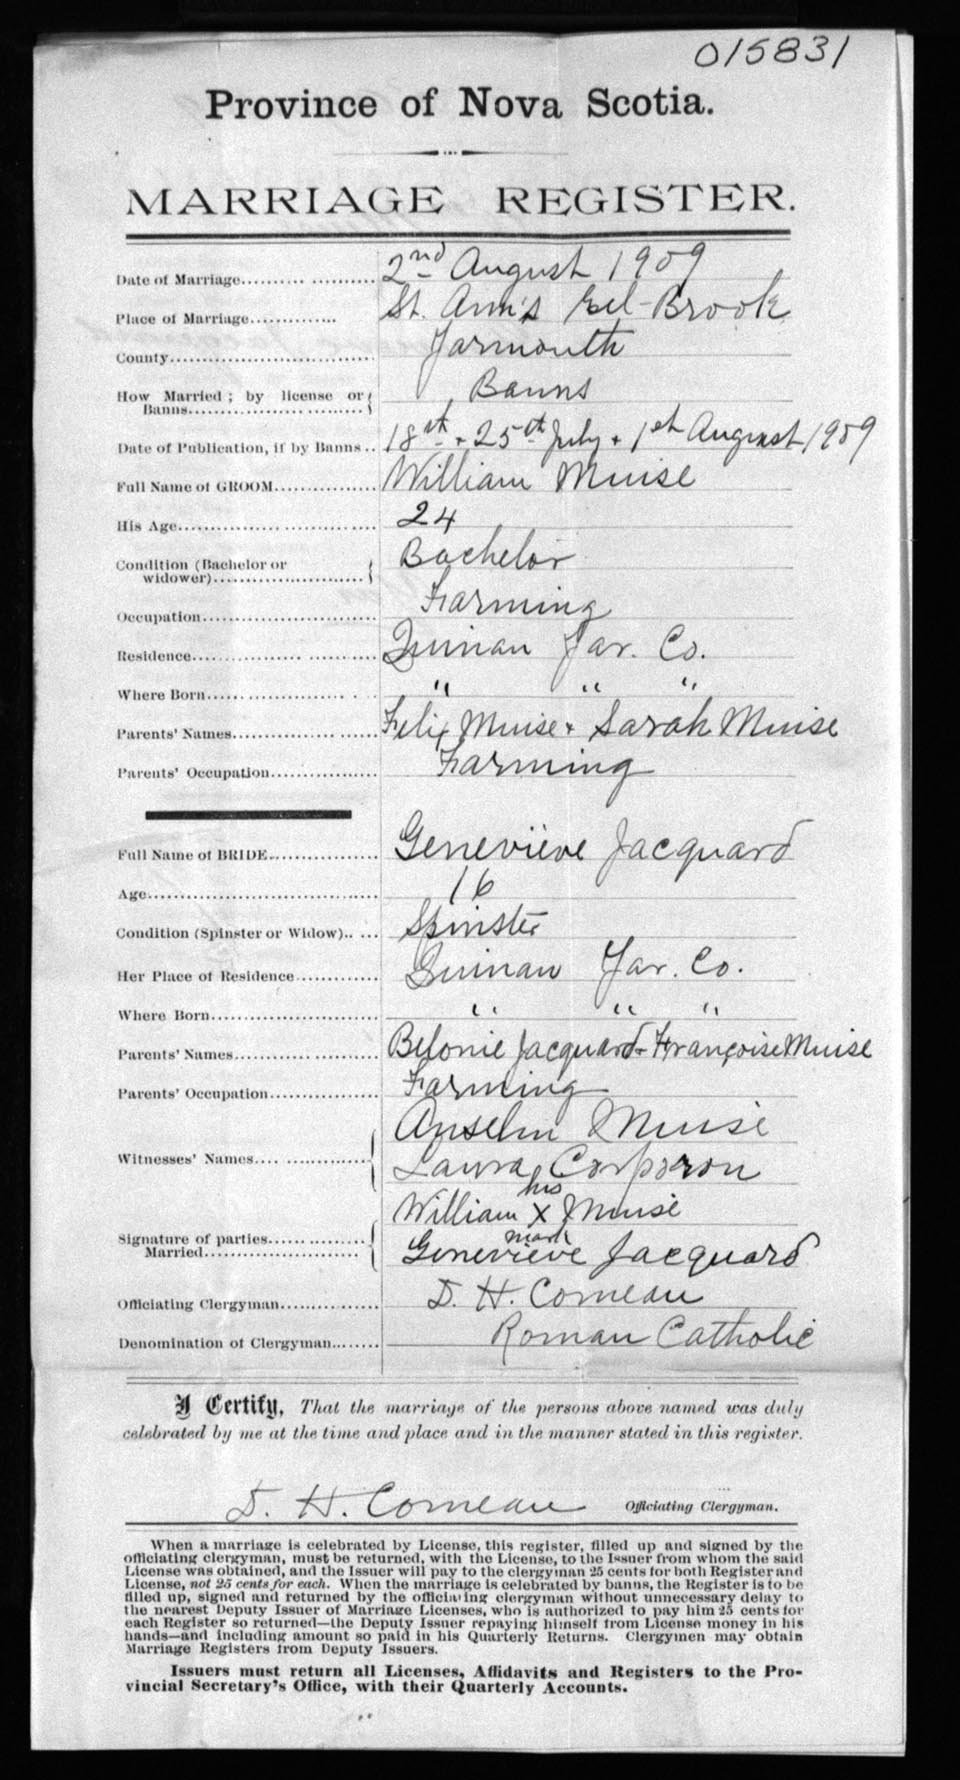 015831
Province of Nova Scotia.
MARRIAGE REGISTER.
Date of Marriage.......... 2nd August 1909
Place of Marriage............. St. Ann's Eel-Brook
County............................. Yarmouth
How Married; by license or Banns............................. Banns
Date of Publication, if by Banns.. 18th + 25th July + 1st August 1909
Full Name of GROOM............... William Muise
His Age............................. 24
Condition (Bachelor or widower)......................... Bachelor
Occupation......................... Farming
Residence......................... Quinan Yar. Co.
Where Born..................... " " "
Parents' Names..................... Felix Muise + Sarah Muise
Parents' Occupation................ Farming
Full Name of BRIDE................ Geneviève Jacquard
Age................................... 16
Condition (Spinster or Widow)..... Spinster
Her Place of Residence............ Quinan Yar. Co.
Where Born........................ " " "
Parents' Names.................... Belonie Jacquard + Françoise Muise
Parents' Occupation................ Farming
Witnesses' Names.................. Anselm Muise
Laura Corporon
his
William X Muise
mark
Signature of parties Married...................... Geneviève Jacquard
Officiating Clergyman.............. D. H. Comeau
Denomination of Clergyman........ Roman Catholic
I Certify, That the marriage of the persons above named was duly
celebrated by me at the time and place and in the manner stated in this register.
D. H. Comeau Officiating Clergyman.
When a marriage is celebrated by License, this register, filled up and signed by the
officiating clergyman, must be returned, with the License, to the Issuer from whom the said
License was obtained, and the Issuer will pay to the clergyman 25 cents for both Register and
License, not 25 cents for each. When the marriage is celebrated by banns, the Register is to be
filled up, signed and returned by the officiating clergyman without unnecessary delay to
the nearest Deputy Issuer of Marriage Licenses, who is authorized to pay him 25 cents for
each Register so returned—the Deputy Issuer repaying himself from License money in his
hands—and including amount so paid in his Quarterly Returns. Clergymen may obtain
Marriage Registers from Deputy Issuers.
Issuers must return all Licenses, Affidavits and Registers to the Pro-
vincial Secretary's Office, with their Quarterly Accounts.